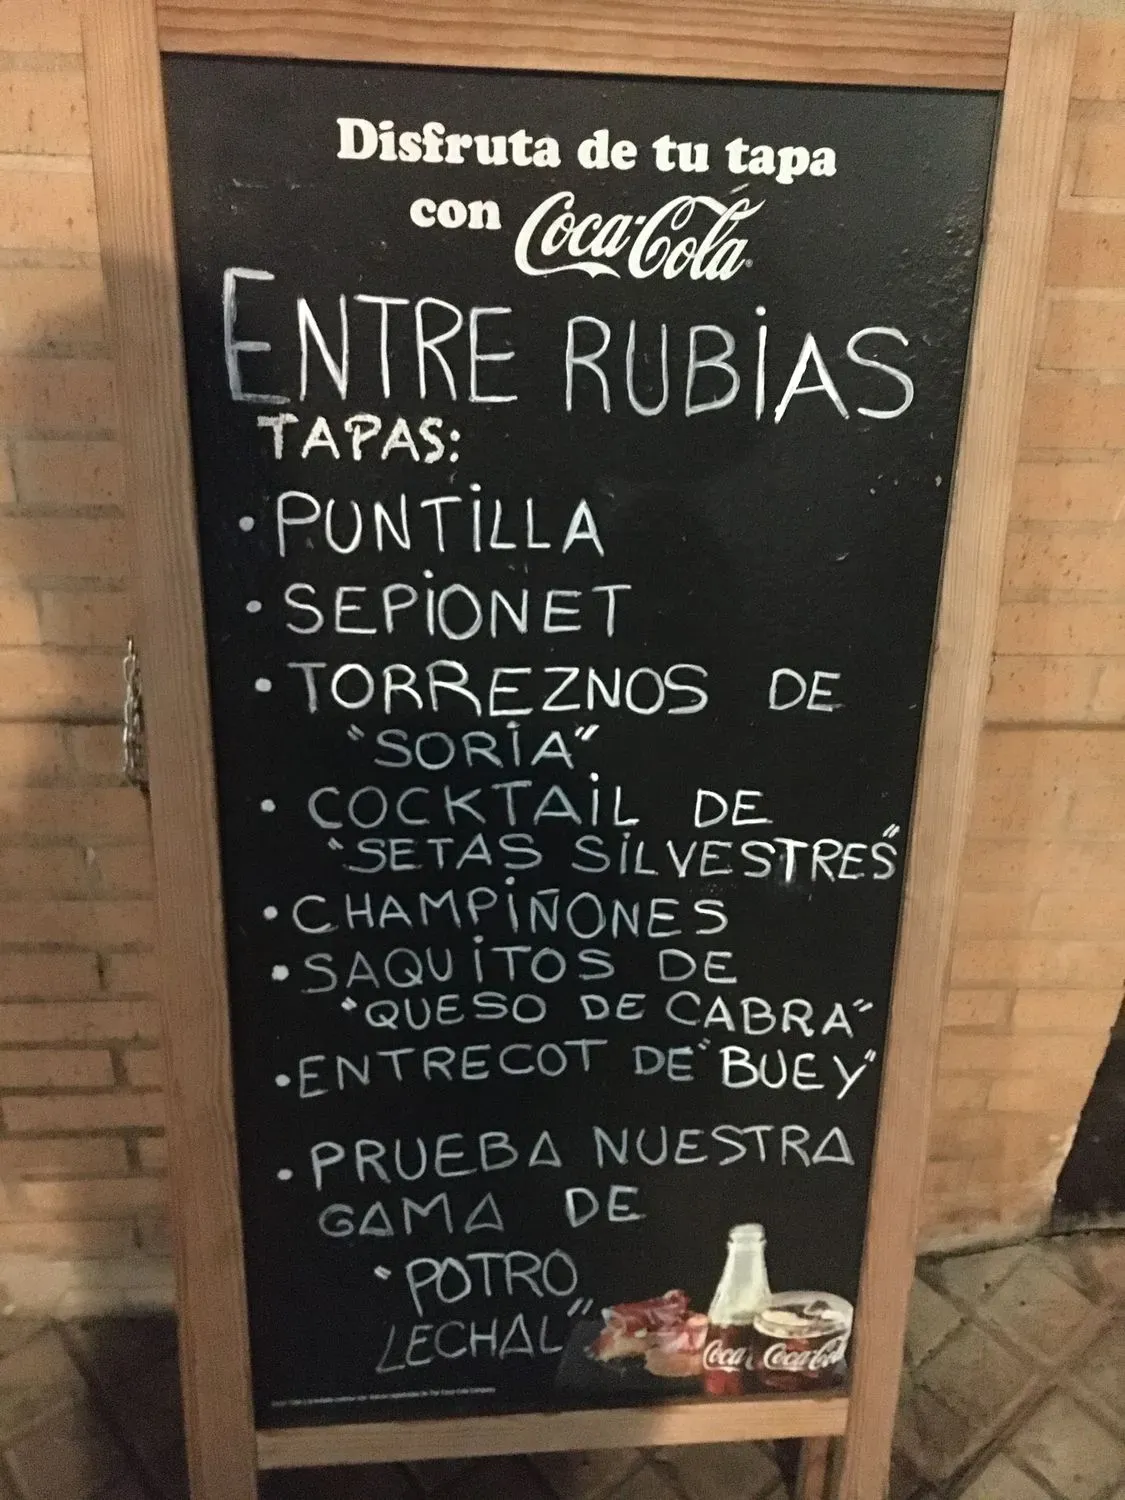 Disfruta de tu tapa
con Coca-Cola
ENTRE RUBIAS
TAPAS:
• PUNTILLA
• SEPIONET
• TORREZNOS DE
"SORIA"
• COCKTAIL DE
"SETAS SILVESTRES"
• CHAMPIÑONES
• SAQUITOS DE
"QUESO DE CABRA"
• ENTRECOT DE "BUEY"
• PRUEBA NUESTRA
GAMA DE
"POTRO
LECHAL"
Coca Coca-Cola